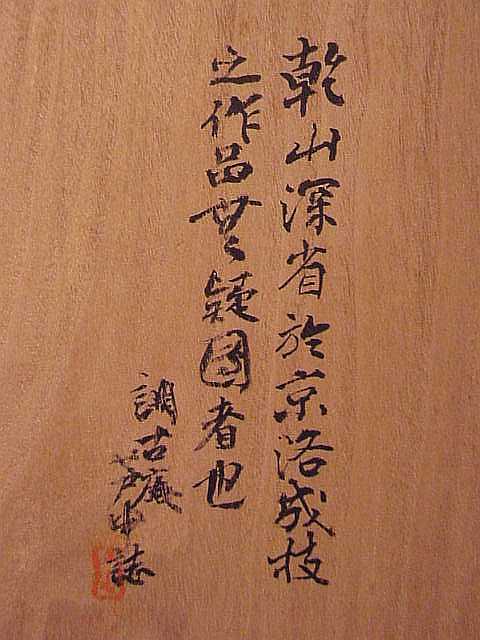 乾山深省於京洛成枝
之作品無疑図者也
調古庵中誌